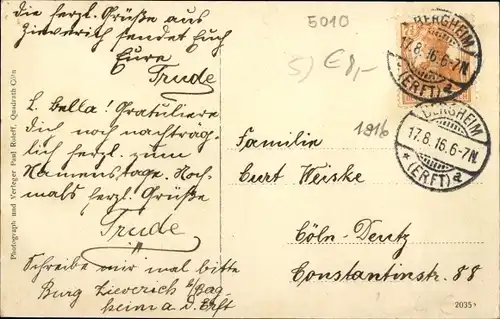 die herzl. Grüße aus
Zieverich sendet Euch
Eure
Trude
L. Bella! Gratuliere
Dich noch nachträg-
lich herzl. zum
Namenstage. Noch-
mals herzl. Grüße
Trude
Schreibe mir mal bitte
Burg Zieverich b/Berg-
heim a. d. Erft
Photograph und Verleger Paul Roleff, Quadrath-Cöln
5010
5) € 8,-
1916
BERGHEIM
17.8.16.6-7N.
* (ERFT) a
BERGHEIM
17.8.16.6-7N.
* (ERFT) a
Familie
Curt Weiske
Cöln-Deutz
Constantinstr. 88
2035